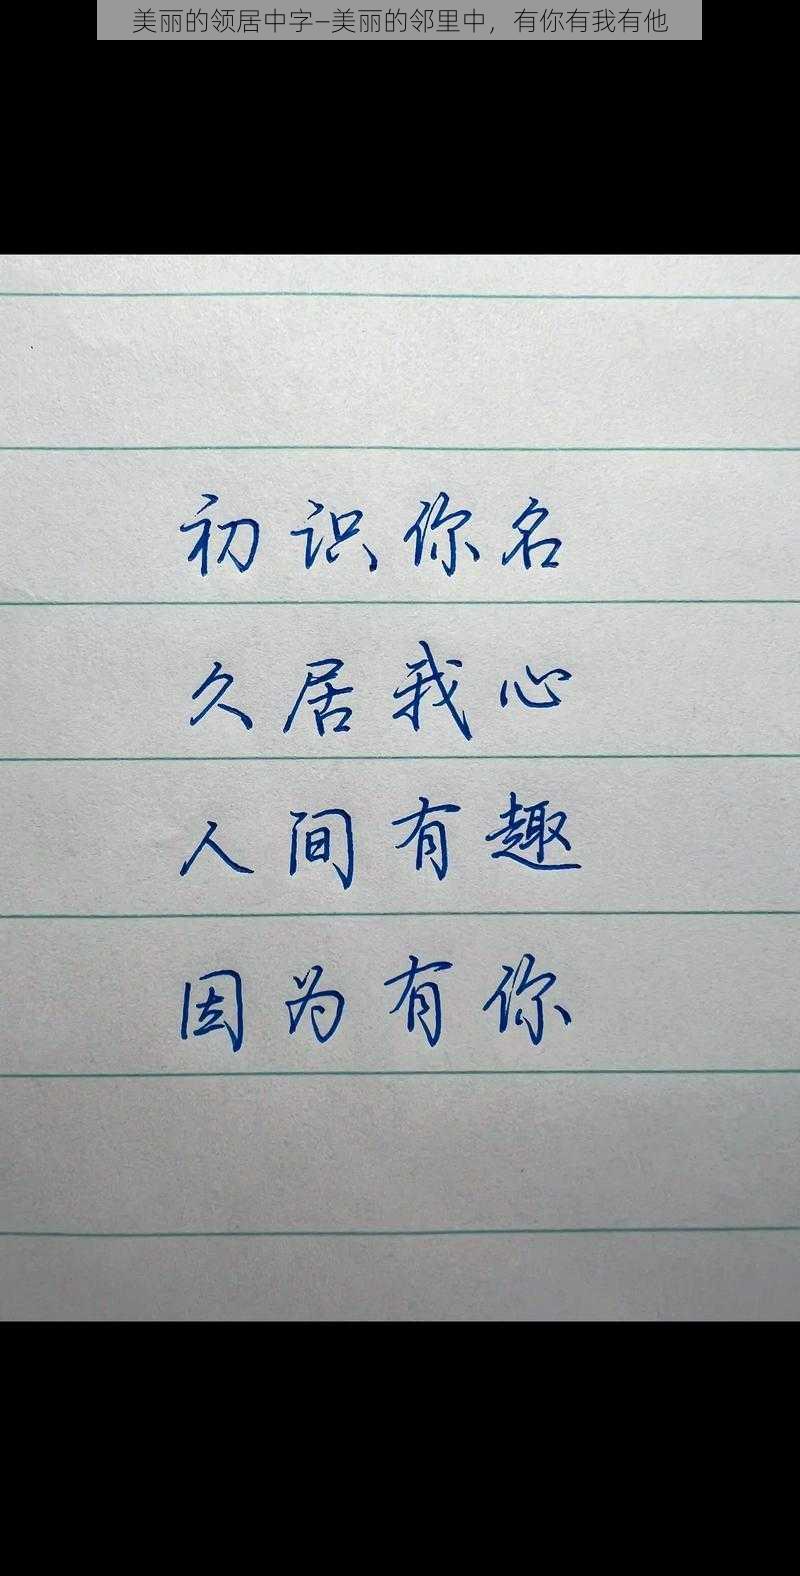 美丽的领居中字—美丽的邻里中，有你有我有他
初识你名
久居我心
人间有趣
因为有你